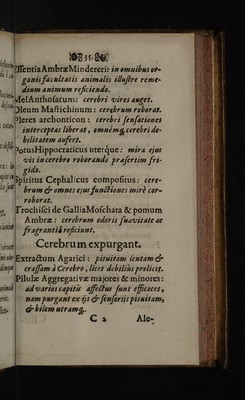 35.
Essentia Ambræ Mindereri: in omnibus or-
ganis facultatis animalis illustre reme-
dium animum reficiendo.
Mel Anthosatum: cerebri vires auget.
Oleum Mastichinum: cerebrum roborat.
Pleres archonticon: cerebri sensationes
interceptas liberat, omnémq; cerebri de-
bilitatem aufert.
Potus Hippocraticus uterque: mira ejus
vis in cerebro roborando præsertim fri-
gido.
Spiritus Cephalicus compositus: cere-
brum & omnes ejus functiones mirè cor-
roborat.
Trochisci de Gallia Moschata & pomum
Ambræ: cerebrum odoris suavitate ac
fragrantiâ reficiunt.
Cerebrum expurgant.
Extractum Agarici: pituitam lentam &
crassam à Cerebro, licet debiliùs prolicit.
Pilulæ Aggregativæ majores & minores:
ad varios capitis affectus sunt efficaces,
nam purgant ex ijs & sensorijs pituitam,
& bilem utramq;.
C 2 Aloë-